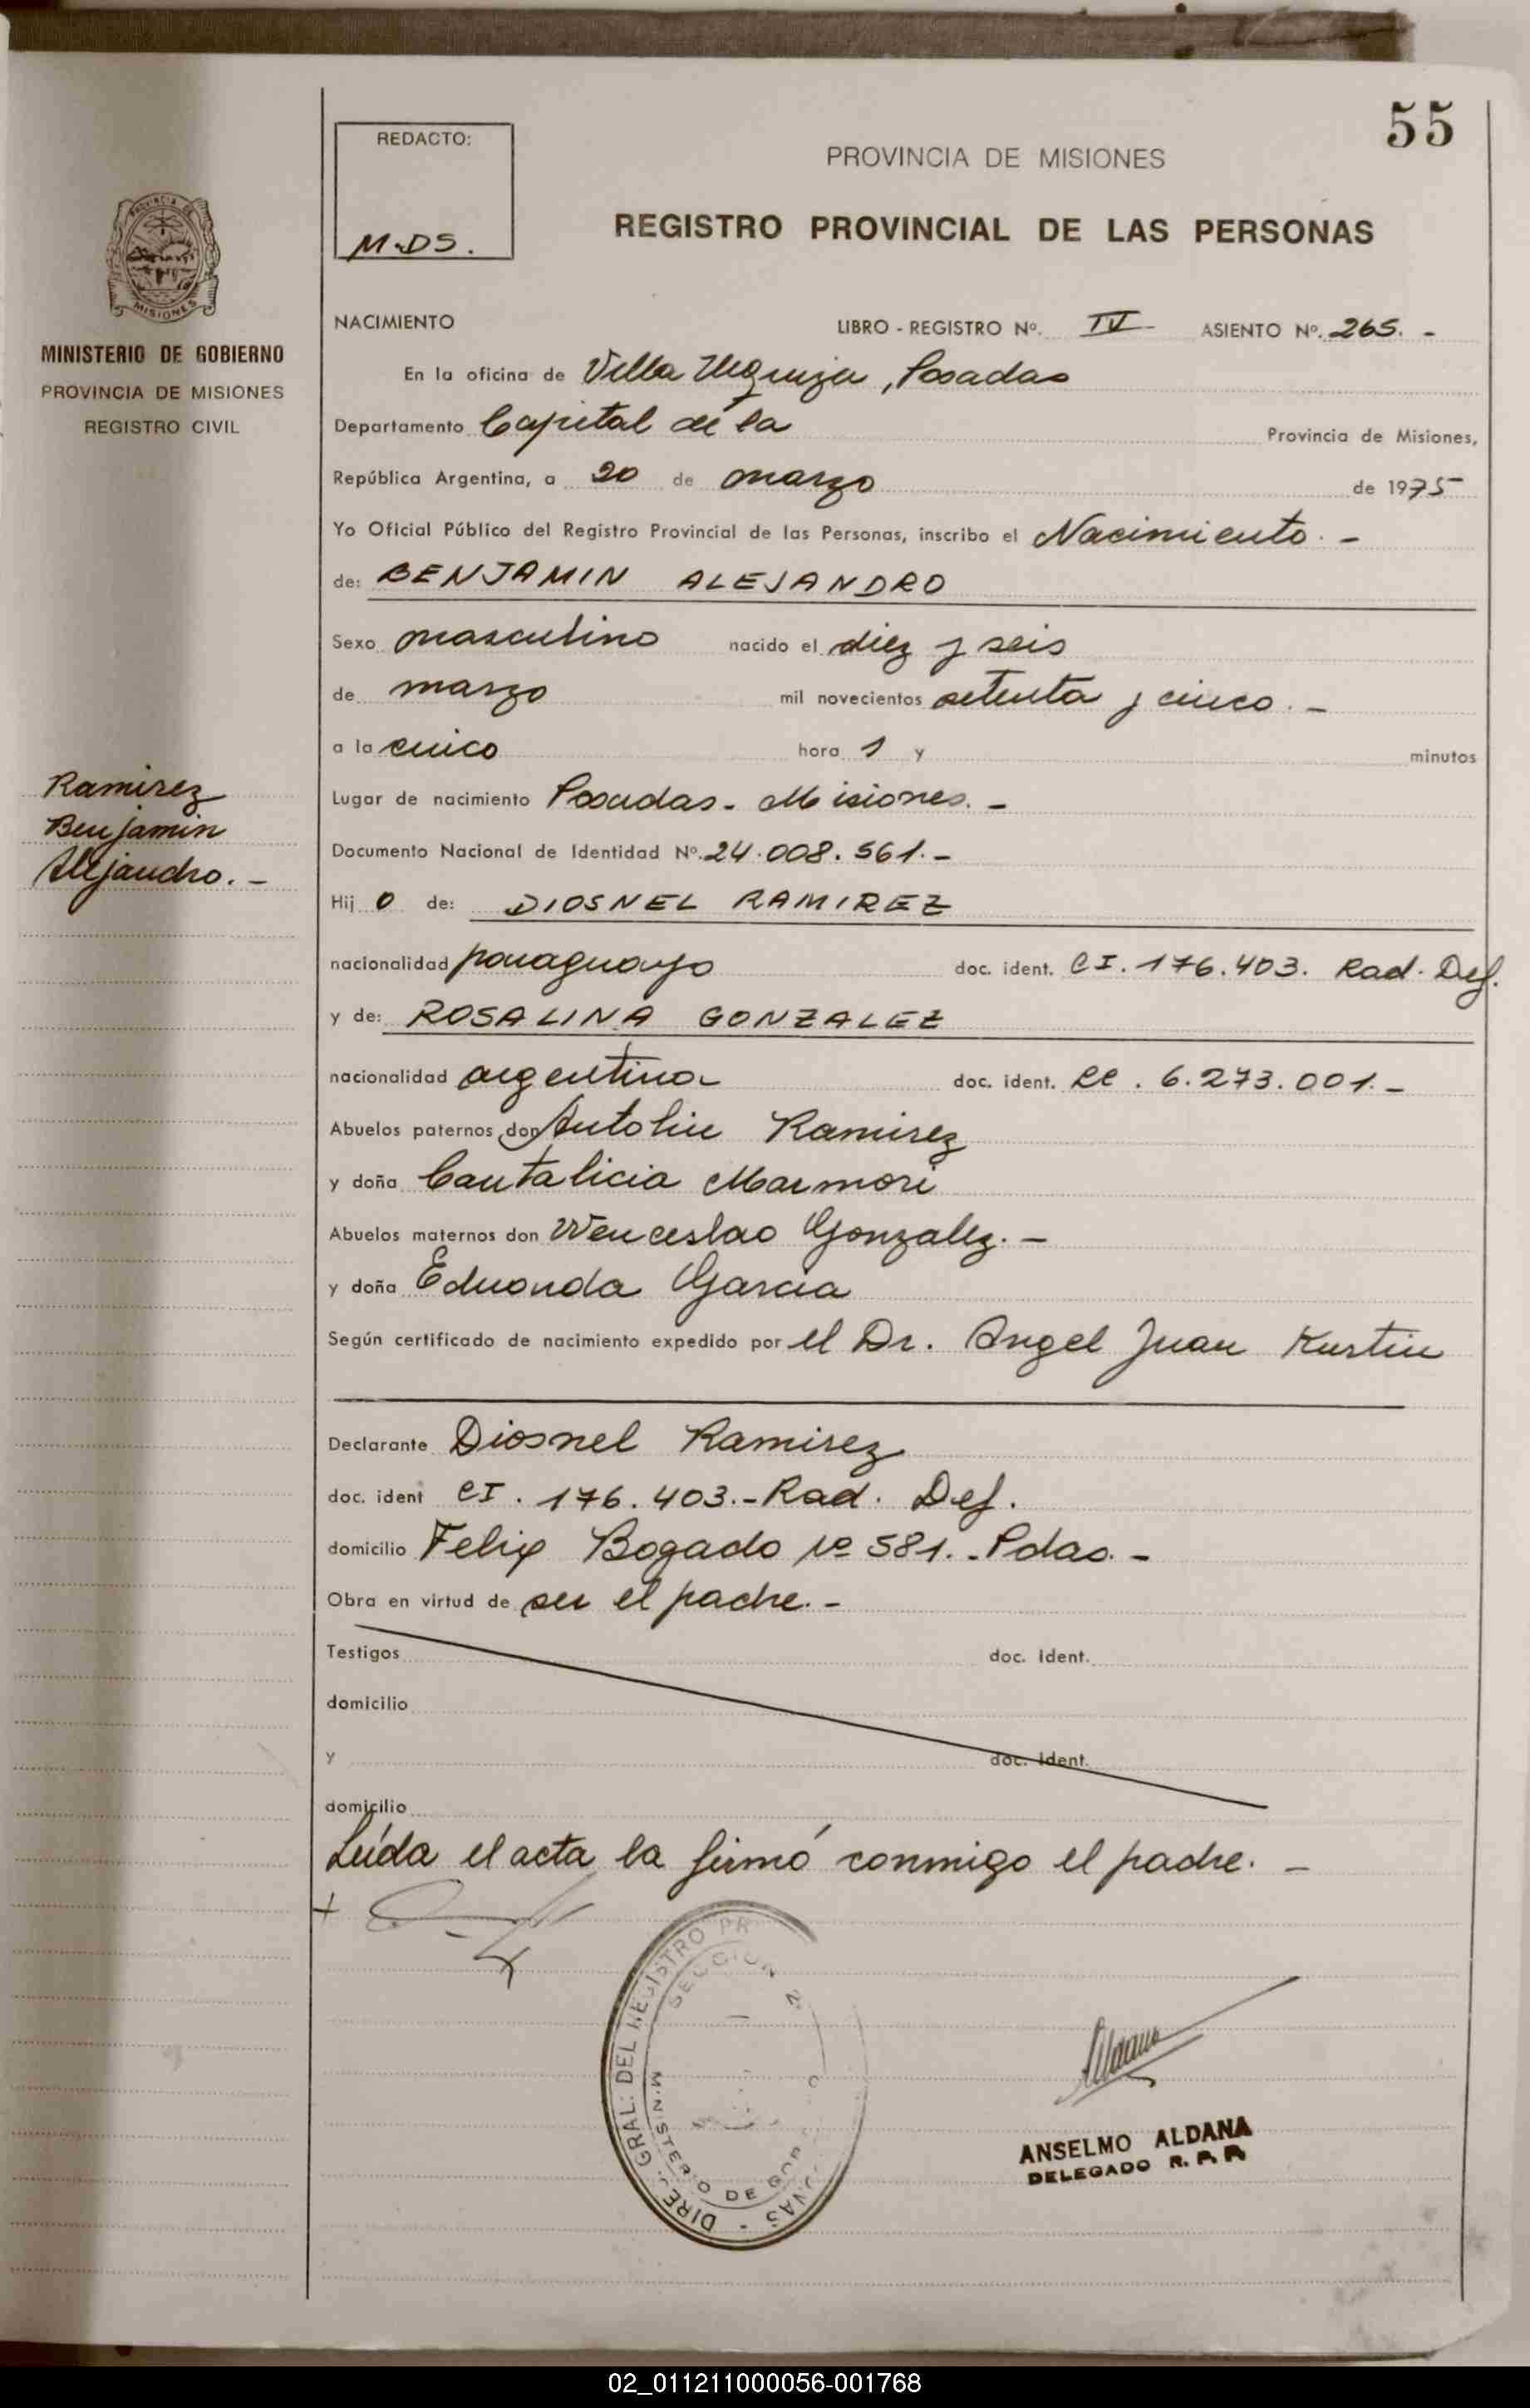 55
REDACTO:
M.DS.
PROVINCIA DE MISIONES
REGISTRO PROVINCIAL DE LAS PERSONAS
PROVINCIA DE MISIONES
MINISTERIO DE GOBIERNO
PROVINCIA DE MISIONES
REGISTRO CIVIL
Ramirez
Benjamin
Alejandro. -
NACIMIENTO LIBRO - REGISTRO Nº. IV ASIENTO Nº. 265. -
En la oficina de Villa Urquiza, Posadas
Departamento Capital de la Provincia de Misiones,
República Argentina, a 20 de marzo de 1975
Yo Oficial Público del Registro Provincial de las Personas, inscribo el Nacimiento. -
de: BENJAMIN ALEJANDRO
Sexo masculino nacido el diez y seis
de marzo mil novecientos setenta y cinco. -
a la cinco hora 1 y minutos
Lugar de nacimiento Posadas - Misiones. -
Documento Nacional de Identidad Nº. 24.008.561. -
Hij o de: DIOSNEL RAMIREZ
nacionalidad paraguayo doc. ident. CI. 176.403. Rad. Def.
y de: ROSALINA GONZALEZ
nacionalidad argentina doc. ident. LC. 6.273.001. -
Abuelos paternos don Antolin Ramirez
y doña Cantalicia Marmori
Abuelos maternos don Wenceslao Gonzalez. -
y doña Eduarda Garcia
Según certificado de nacimiento expedido por el Dr. Angel Juan Kustin
Declarante Diosnel Ramirez
doc. ident CI. 176.403.- Rad. Def.
domicilio Felix Bogado Nº 581. - Pdas. -
Obra en virtud de ser el padre. -
Testigos doc. ident.
domicilio
y doc. ident.
domicilio
Leída el acta la firmó conmigo el padre. -
DIREC. GRAL. DEL REGISTRO PR
SECCION 2
MINISTERIO DE GOB
ANSELMO ALDANA
DELEGADO R. P. P.
02_011211000056-001768